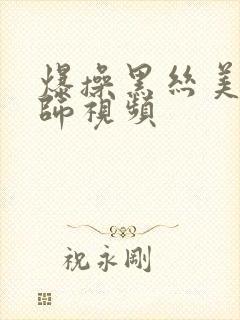 爆操黑丝美
師視頻
祝永剛